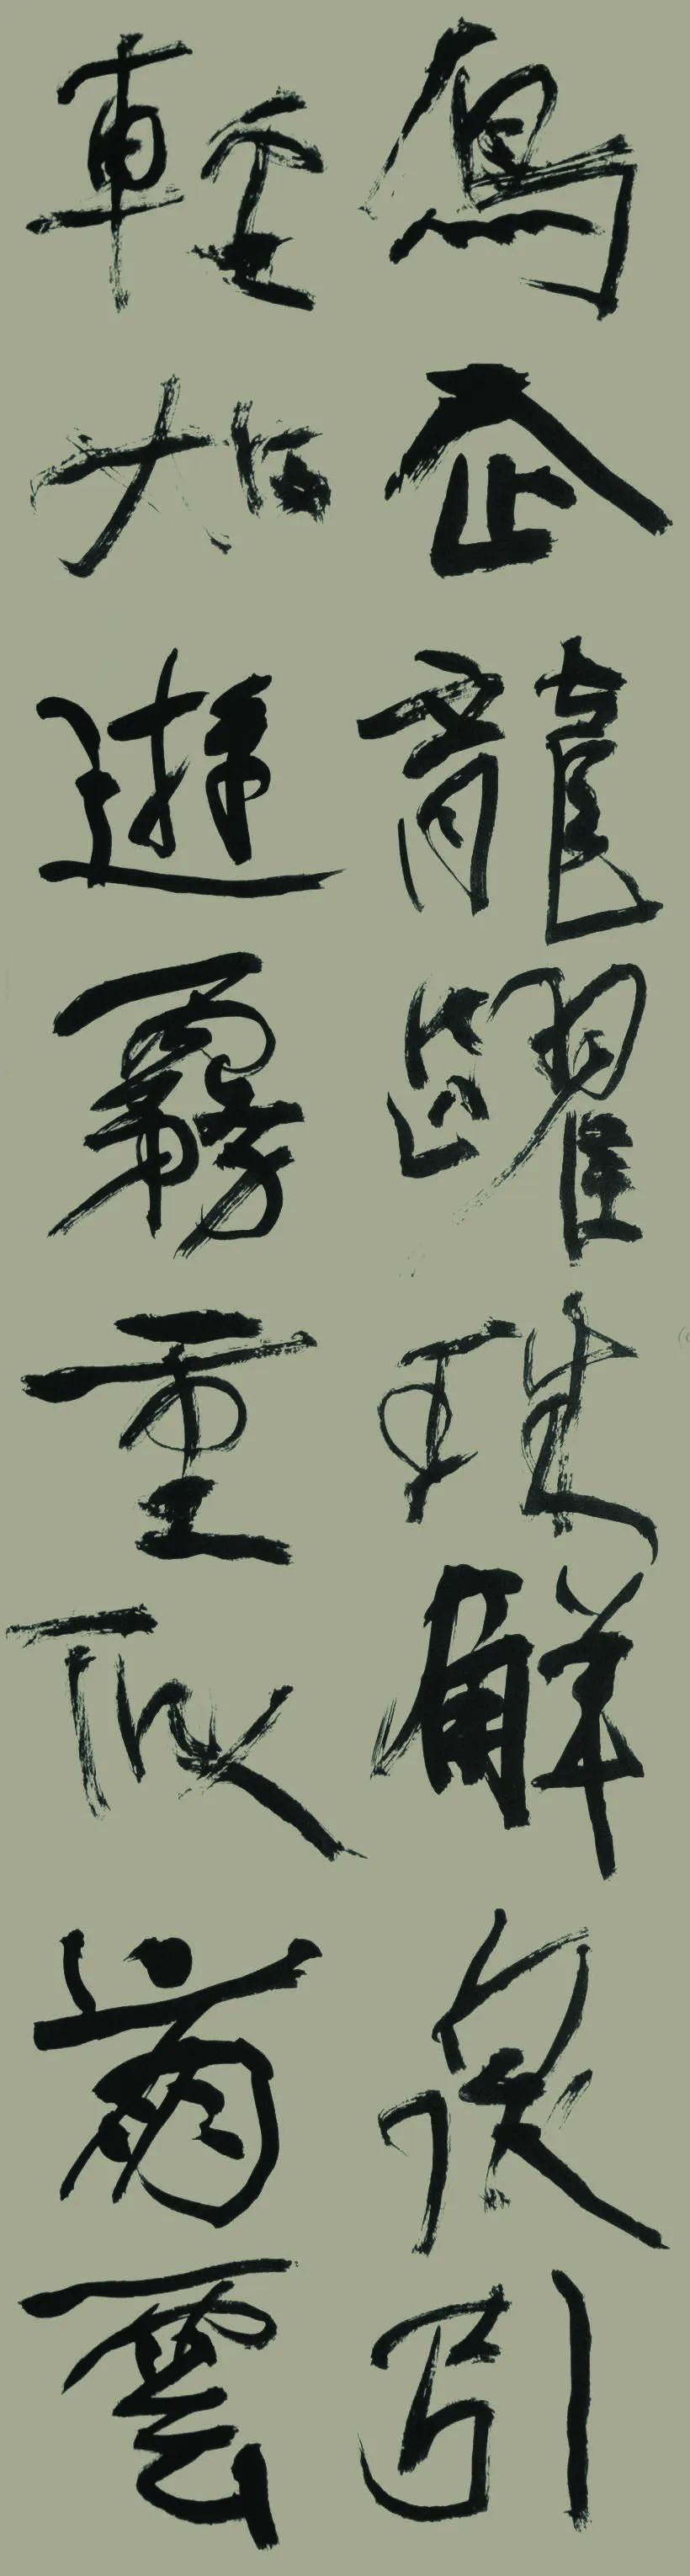 鳥企龍躍珠解泉引
輕如遊霧重似崩雲